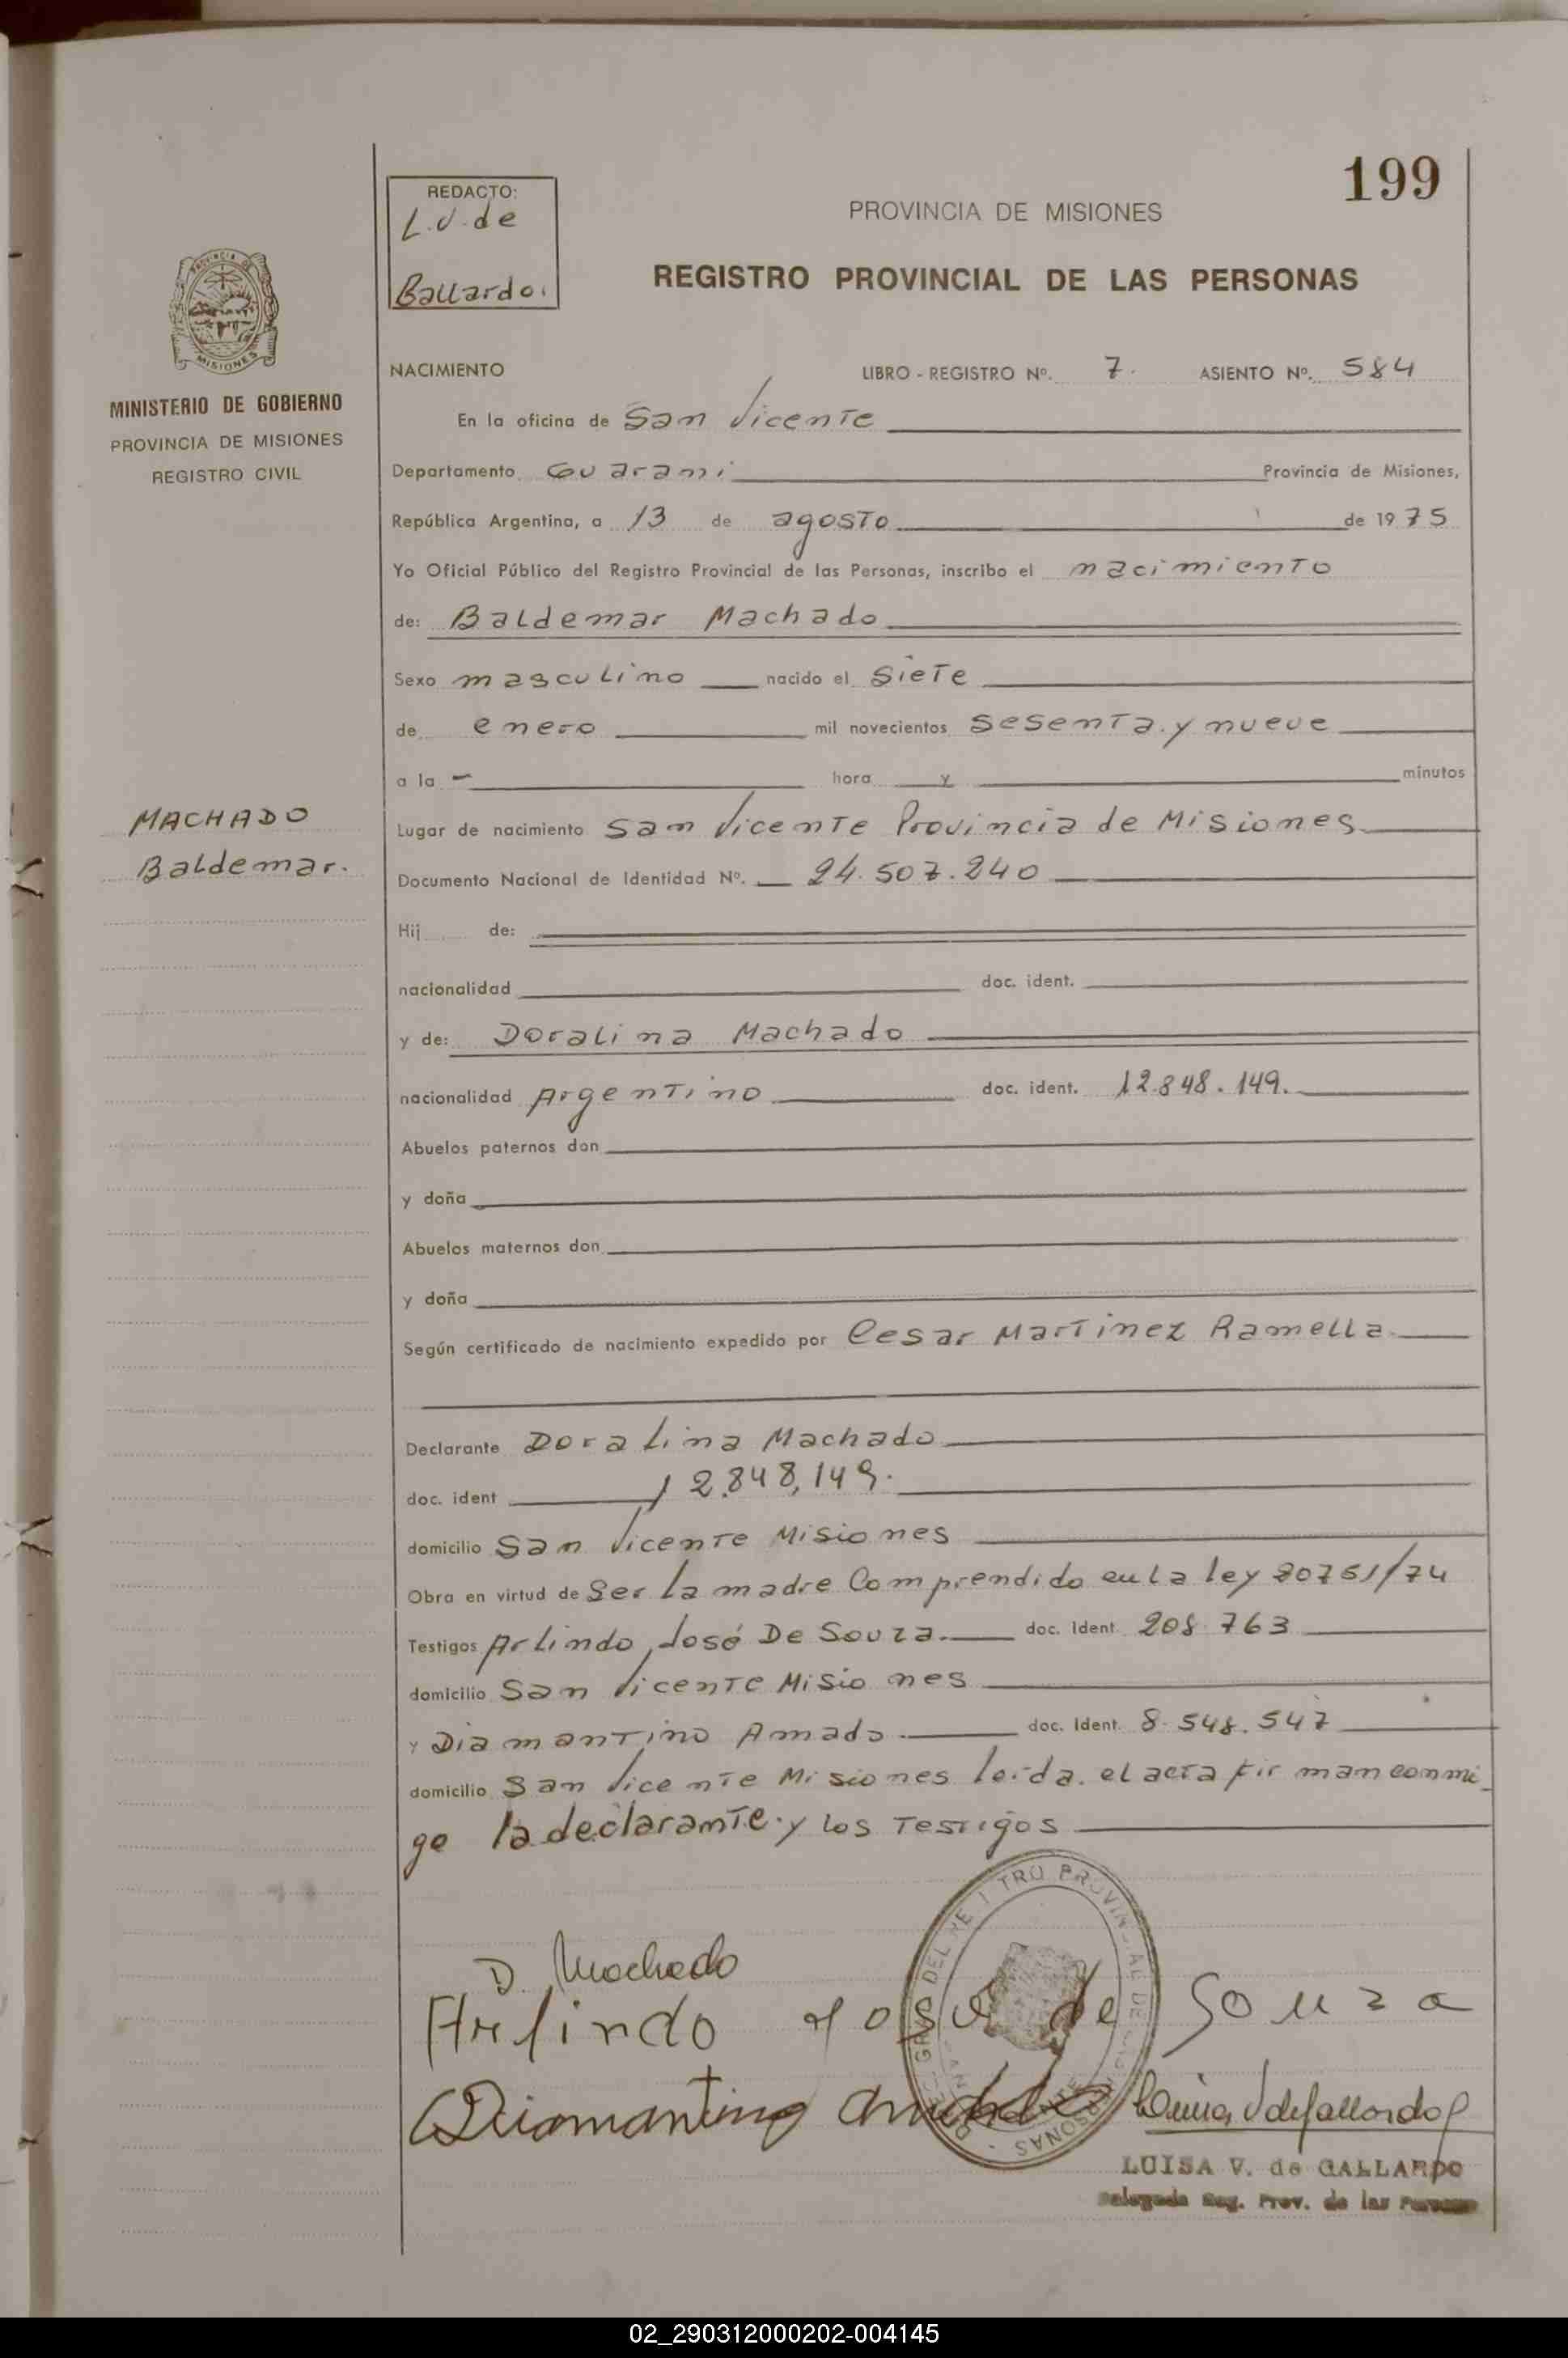 199
REDACTO:
L.V. de
Gallardo.
PROVINCIA DE MISIONES
REGISTRO PROVINCIAL DE LAS PERSONAS
PROVINCIA DE
MISIONES
MINISTERIO DE GOBIERNO
PROVINCIA DE MISIONES
REGISTRO CIVIL
NACIMIENTO LIBRO - REGISTRO Nº. 7. ASIENTO Nº. 584
En la oficina de San Vicente
Departamento Guarani Provincia de Misiones,
República Argentina, a 13 de agosto de 1975
Yo Oficial Público del Registro Provincial de las Personas, inscribo el nacimiento
de: Baldemar Machado
Sexo masculino nacido el siete
de enero mil novecientos sesenta y nueve
a la - hora y minutos
MACHADO
Baldemar.
Lugar de nacimiento San Vicente Provincia de Misiones
Documento Nacional de Identidad Nº. 24.507.240
Hij de:
nacionalidad doc. ident.
y de: Doralina Machado
nacionalidad Argentino doc. ident. 12.848.149.
Abuelos paternos don
y doña
Abuelos maternos don
y doña
Según certificado de nacimiento expedido por Cesar Martinez Ramella
Declarante Doralina Machado
doc. ident 12.848,149.
domicilio San Vicente Misiones
Obra en virtud de Ser la madre Comprendido en la ley 20751/74
Testigos Arlindo José De Souza. doc. Ident. 208.763
domicilio San Vicente Misiones
y Diamantino Amado doc. Ident. 8.548.547
domicilio San Vicente Misiones leída el acta firman conmi
go la declarante y los Testigos
D. Machado
Arlindo José de Souza
Diamantino Amado Luisa V de Gallardo
LUISA V. de GALLARDO
Delegada Reg. Prov. de las Personas
02_290312000202-004145